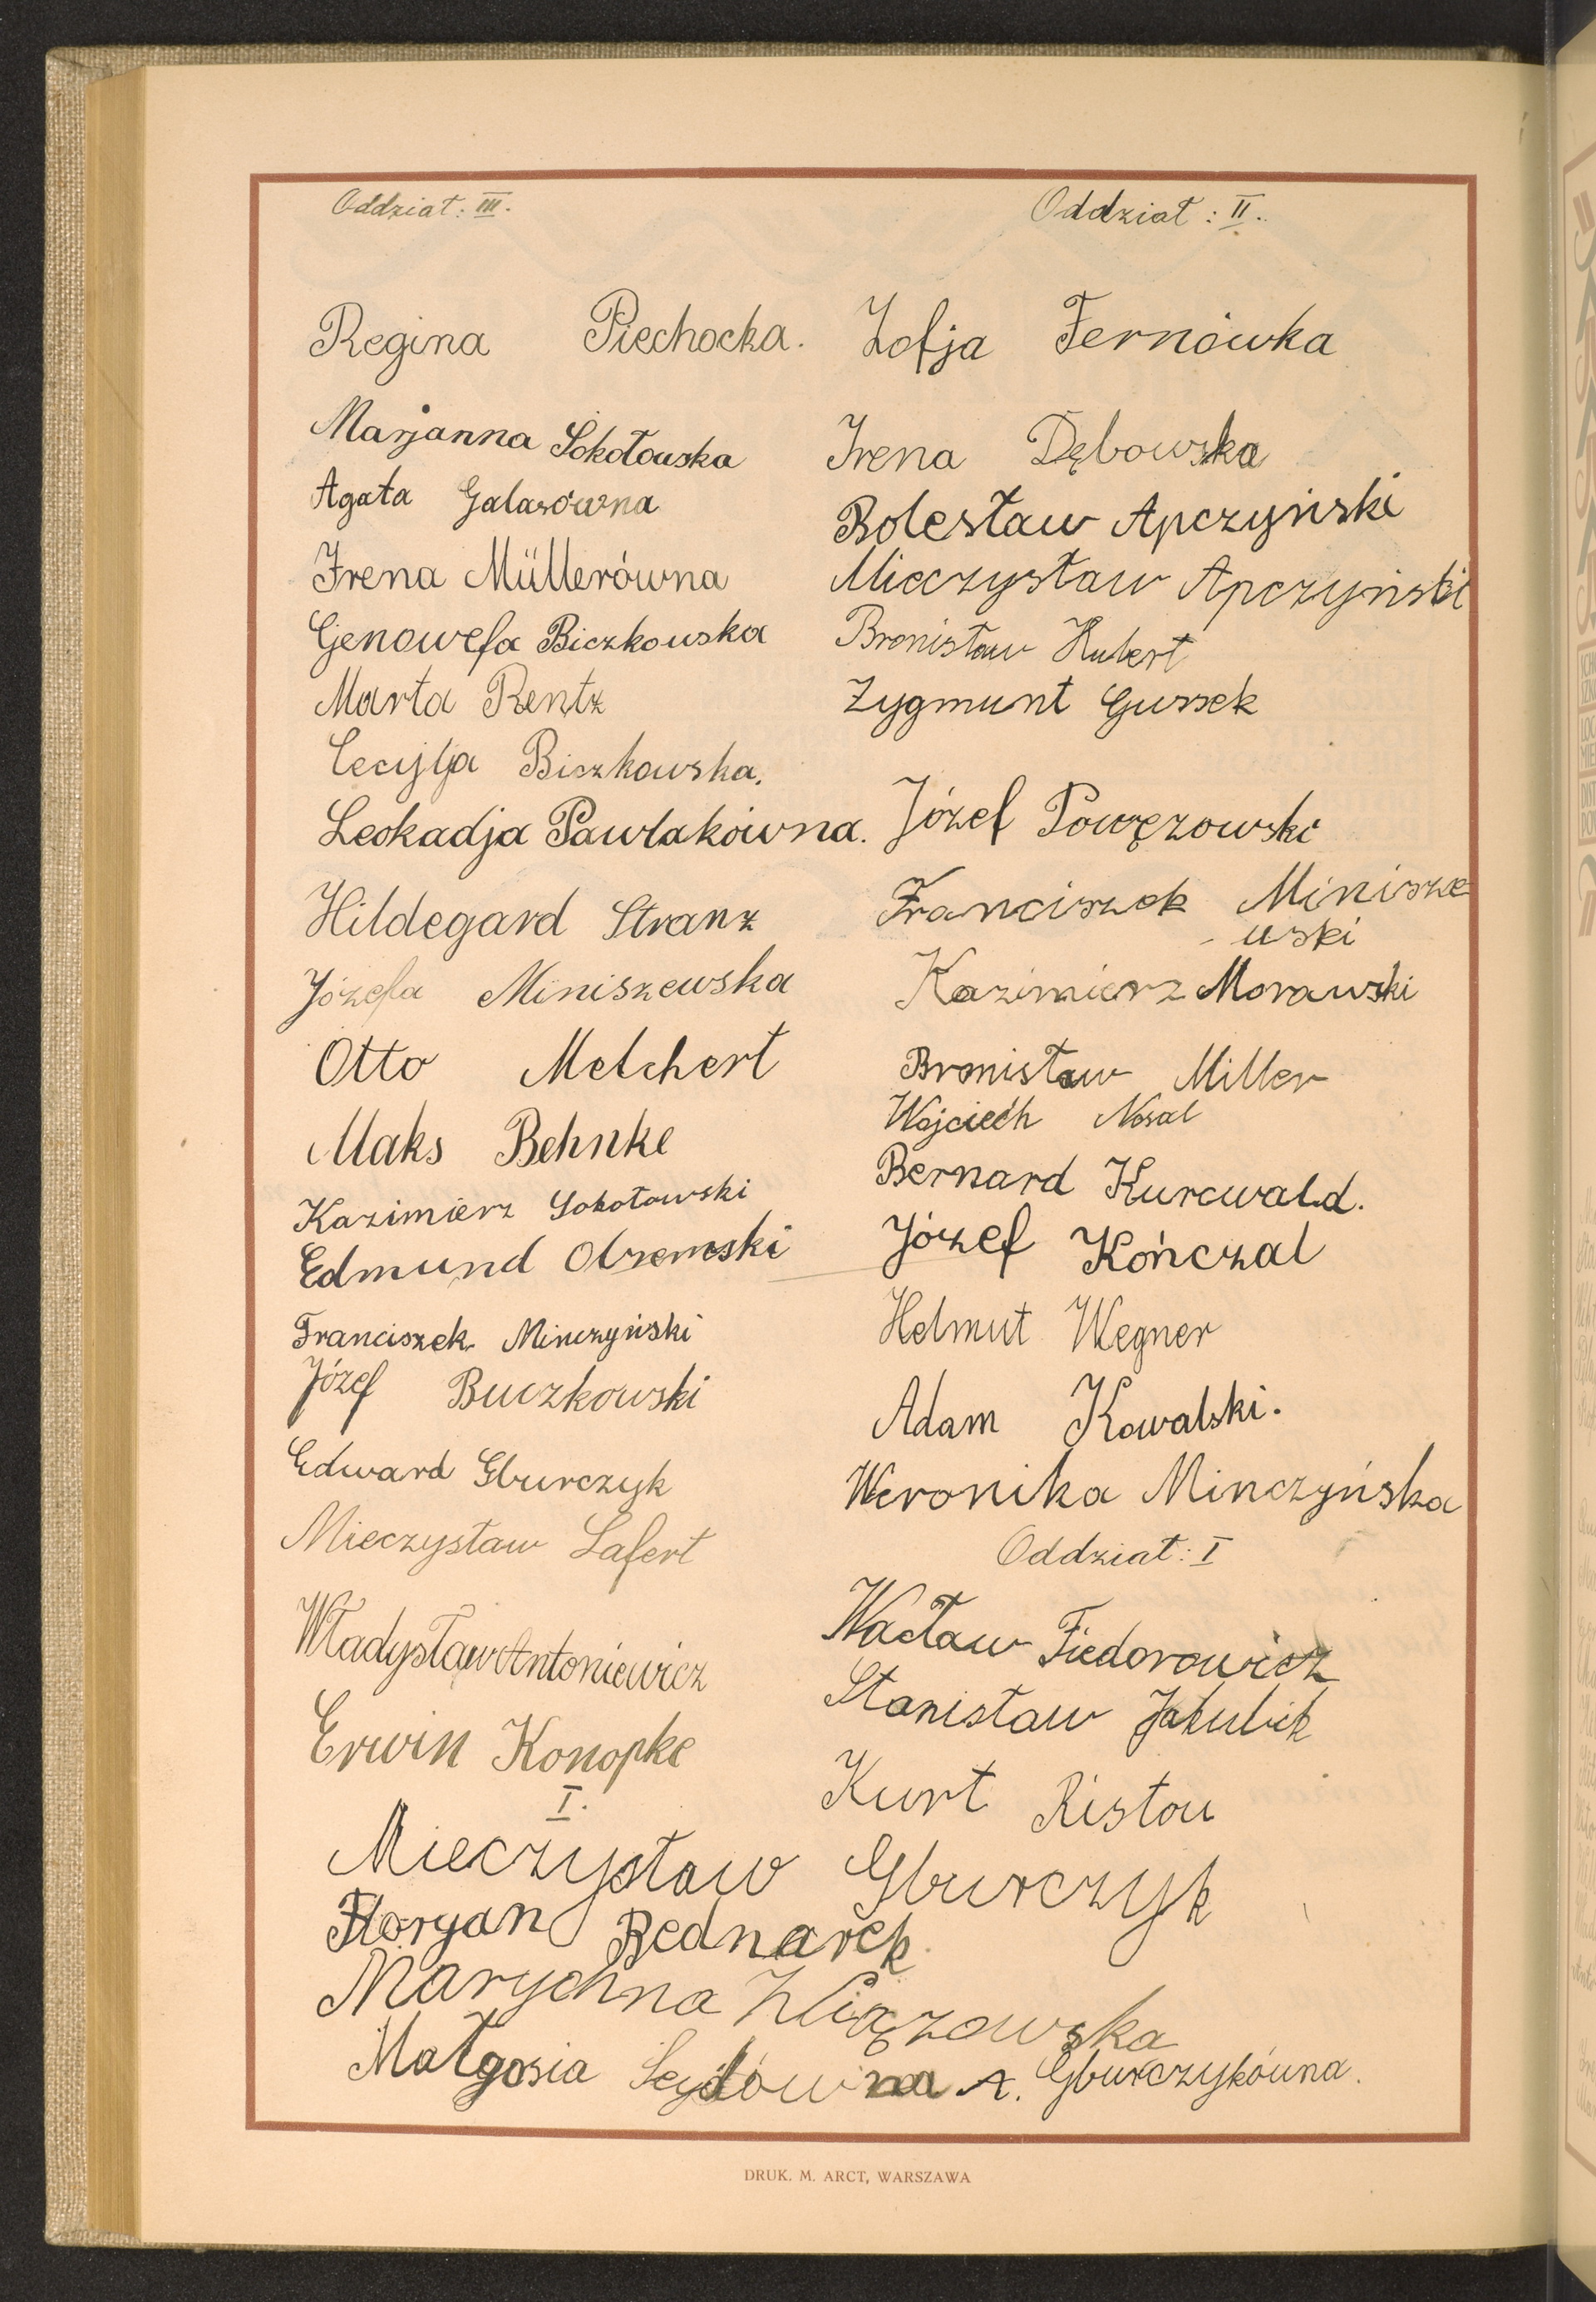 Oddział: III.
Regina Piechocka.
Marjanna Sokołowska
Agata Galasówna
Irena Müllerówna
Genowefa Biczkowska
Marta Rentz
Cecylja Biczkowska.
Leokadja Pawlakówna.
Hildegard Stranz
Józefa Miniszewska
Otto Melchert
Maks Behnke
Kazimierz Sokołowski
Edmund Obremski
Franciszek Minczyński
Józef Buczkowski
Edward Gburczyk
Mieczysław Lafert
Władysław Antoniewicz
Erwin Konopke
Oddział: II.
Zofja Fernówka
Irena Dębowska
Bolesław Apczyński
Mieczysław Apczyński
Bronisław Hubert
Zygmunt Gussek
Józef Powęzowski
Franciszek Minisze
-wski
Kazimierz Morawski
Bronisław Miller
Wojciech Nosal
Bernard Kurcwald.
Józef Kończal
Helmut Wegner
Adam Kowalski.
Weronika Minczyńska
Oddział: I
Wacław Fiedorowicz
Stanisław Jakubik
Kurt Ristou
I.
Mieczysław Gburczyk
Florjan Bednarek
Marychna
Małgosia A. Gburczykówna.
DRUK. M. ARCT, WARSZAWA